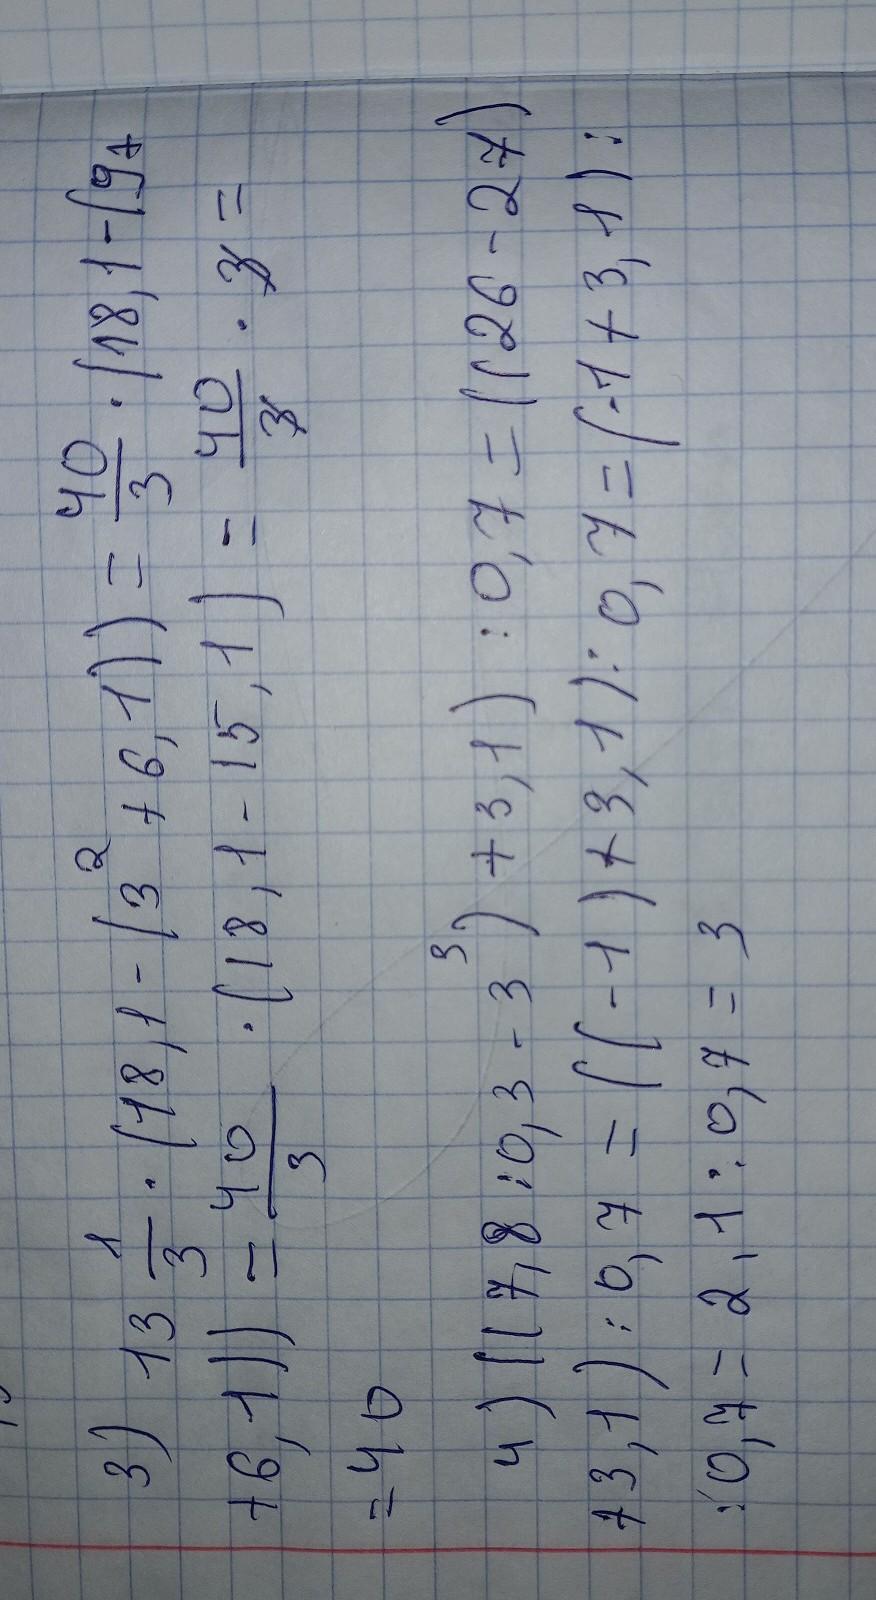 3) 13 1/3 · (18,1 - (3² + 6,1)) = 40/3 · (18,1 - (9 +
+ 6,1)) = 40/3 · (18,1 - 15,1) = 40/3 · 3 =
= 40
4) ((7,8 : 0,3 - 3³) + 3,1) : 0,7 = ((26 - 27)
+ 3,1) : 0,7 = ((-1) + 3,1) : 0,7 = (-1 + 3,1) :
: 0,7 = 2,1 : 0,7 = 3